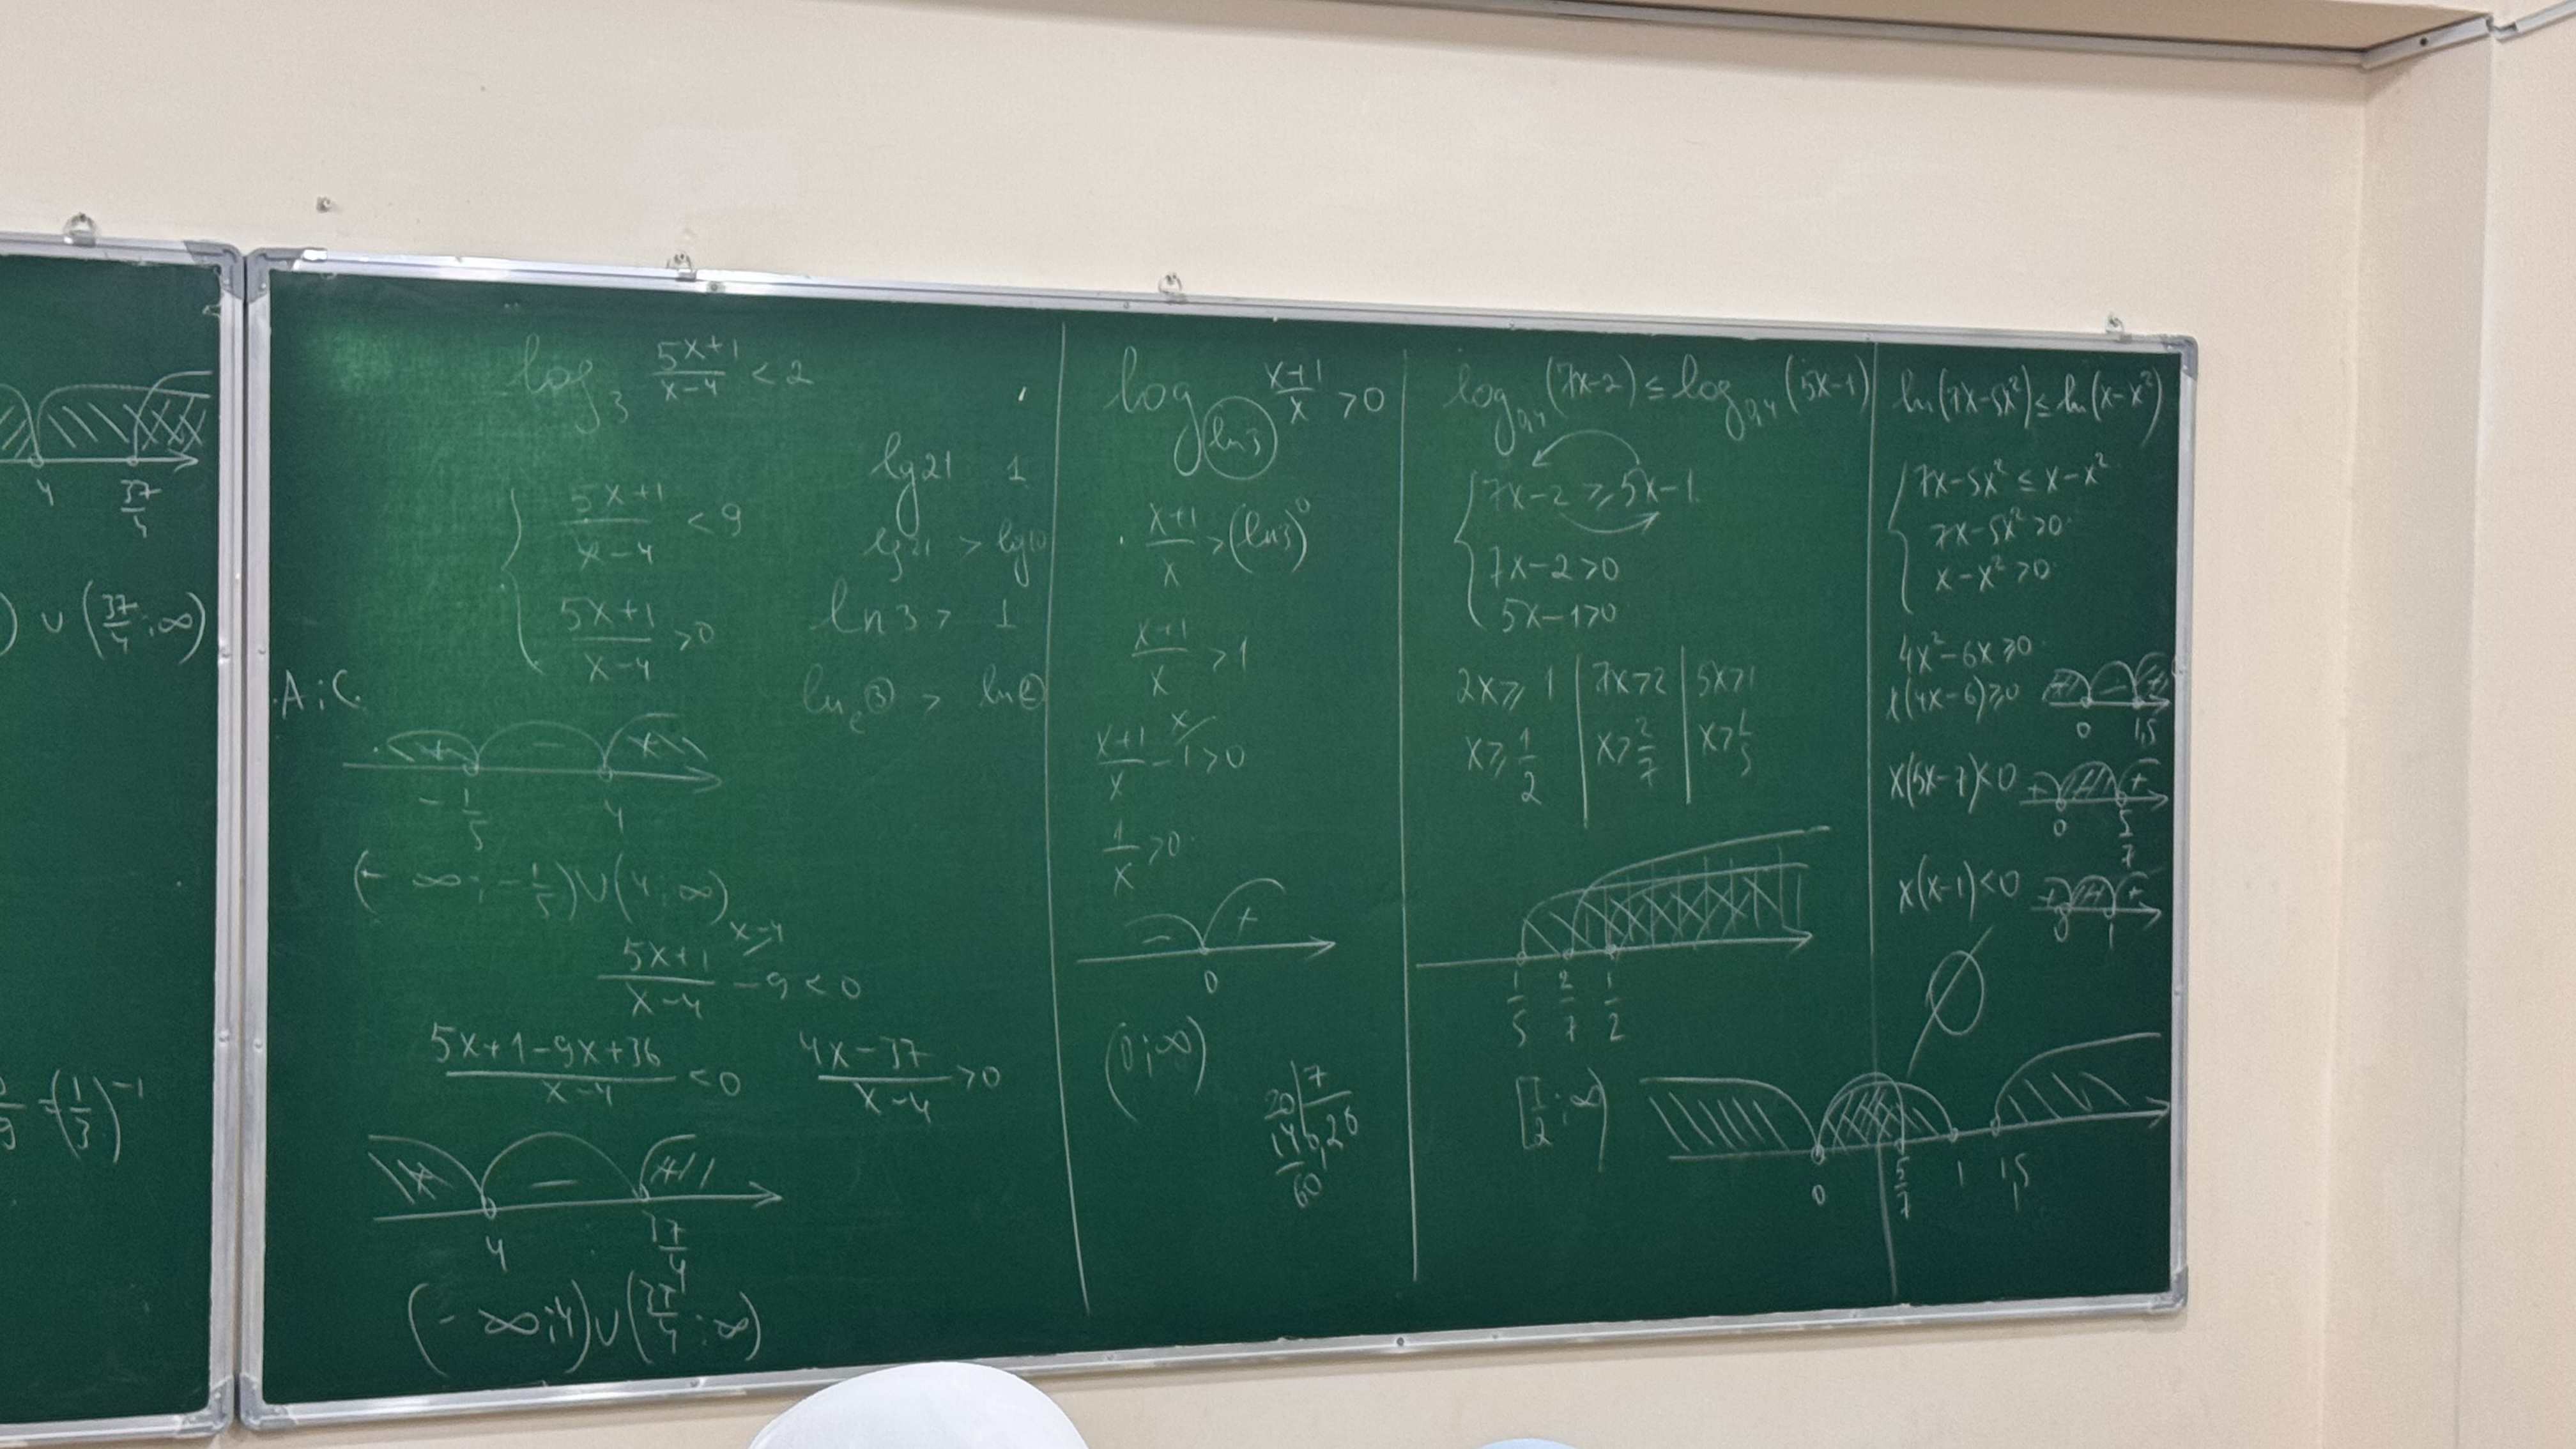 4 37/4
) ∪ (37/4; ∞)
(1/3)^-1
log_3 (5x+1)/(x-4) < 2
{ (5x+1)/(x-4) < 9
(5x+1)/(x-4) > 0
lg21 1
lg21 > lg10
ln3 > 1
ln_e 3 > ln e
A.i.C.
+ - +
-1/5 4
(-∞; -1/5) ∪ (4; ∞)
(5x+1)/(x-4) - 9 < 0
x-4
(5x+1-9x+36)/(x-4) < 0 (4x-37)/(x-4) > 0
+ - +
4 37/4
(-∞; 4) ∪ (37/4; ∞)
log_ln3 (x+1)/x > 0
(x+1)/x > (ln3)^0
(x+1)/x > 1
(x+1)/x - 1 > 0
x
1/x > 0
- +
0
(0; ∞)
20 | 7
14 0,26
60
log_0,4 (7x-2) ≤ log_0,4 (5x-1)
{ 7x-2 ≥ 5x-1
7x-2>0
5x-1>0
2x ≥ 1 | 7x>2 | 5x>1
x ≥ 1/2 | x > 2/7 | x > 1/5
1/5 2/7 1/2
[1/2; ∞)
ln(7x-5x²) ≤ ln(x-x²)
{ 7x-5x² ≤ x-x²
7x-5x² >0
x-x² >0
4x²-6x ≥ 0
x(4x-6) ≥ 0 + - +
0 1,5
x(5x-7)<0 + - +
0 5/7
x(x-1)<0 + - +
0 1
∅
0 5/7 1 1,5